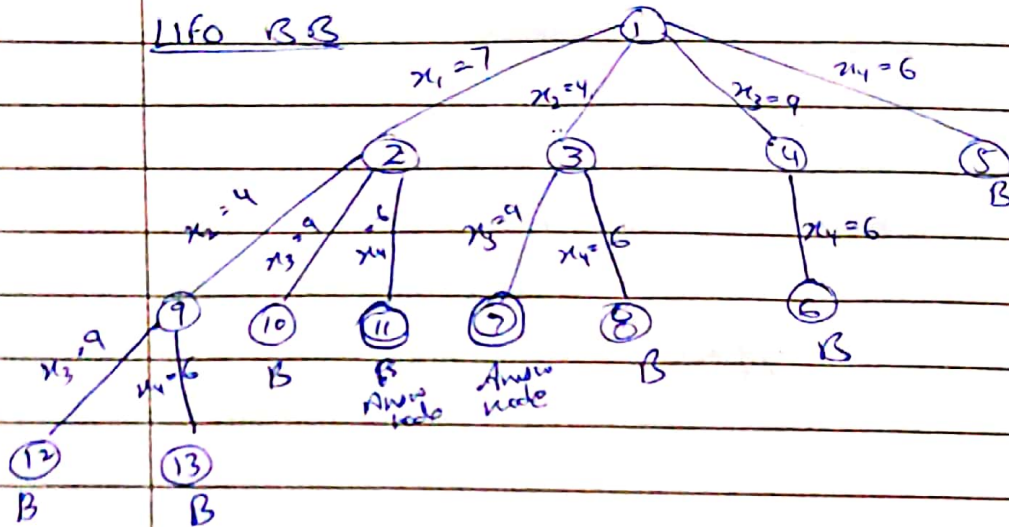 LIFO BB
1
x₁=7
x₂=4
x₃=9
x₄=6
2
3
4
5
B
x₂=4
x₃=9
x₄=6
x₃=9
x₄=6
x₄=6
9
10
11
7
8
6
B
B
Answer node
Answer node
B
B
x₃=9
x₄=6
12
13
B
B